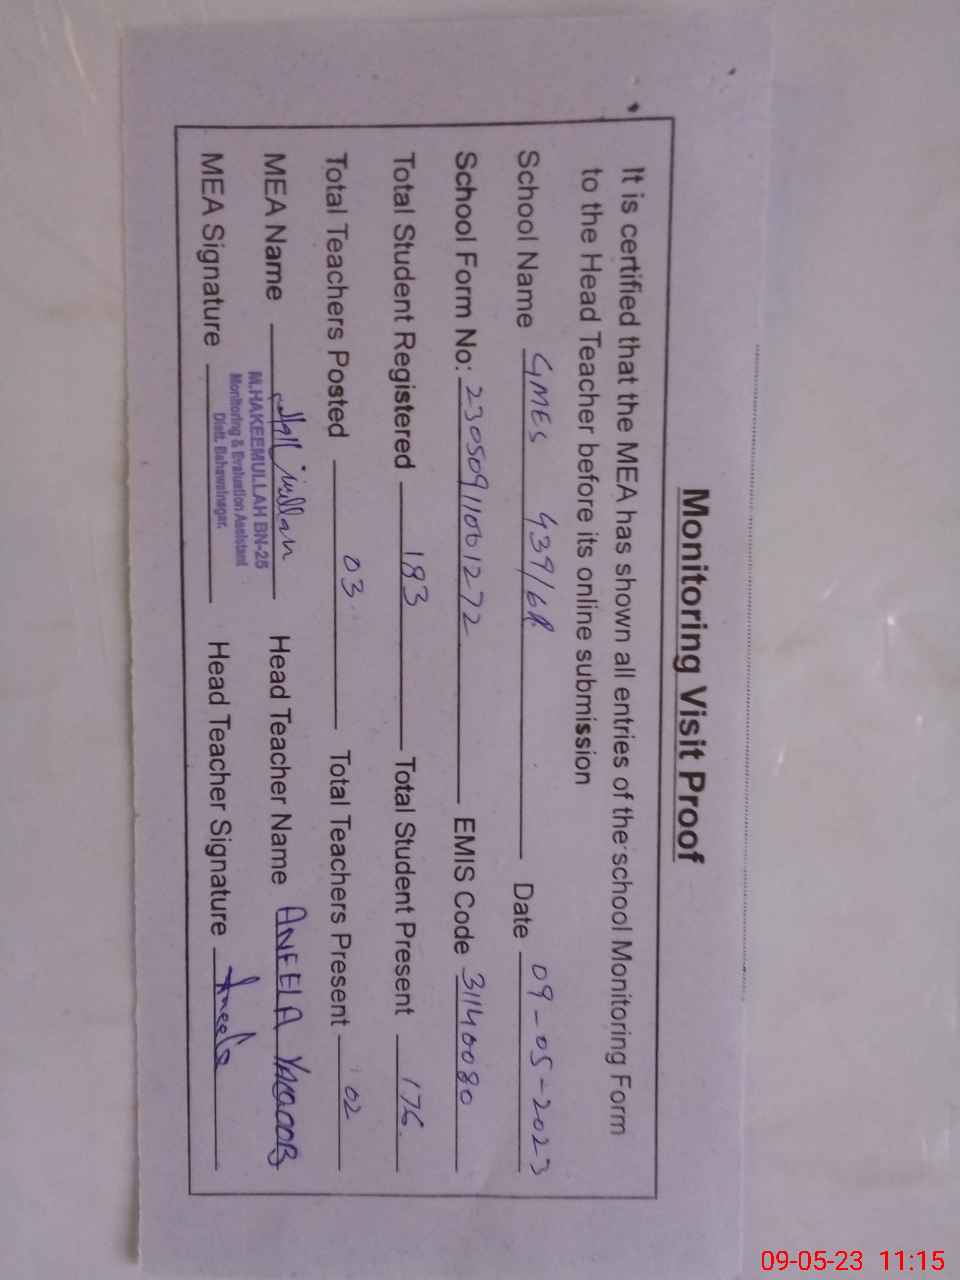 Monitoring Visit Proof
It is certified that the MEA has shown all entries of the school Monitoring Form
to the Head Teacher before its online submission
School Name GMES 439/6R Date 09-05-2023
School Form No: 23050911001272 EMIS Code 31140080
Total Student Registered 183 Total Student Present 176
Total Teachers Posted 03 Total Teachers Present 02
MEA Name Head Teacher Name ANEELA YAQOOB
MEA Signature Head Teacher Signature Aneela
M.HAKEEMULLAH BN-25
Monitoring & Evaluation Assistant
Distt. Bahawalnagar.
09-05-23 11:15